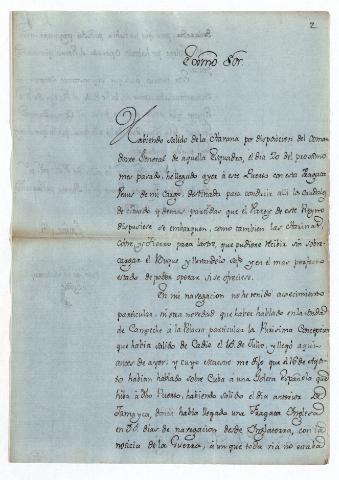 2
Exmo Sor.
Habiendo salido de la Havana por disposicion del Coman
dante General de aquella Esquadra, el dia 20 del proximo
mes pasado, he llegado ayer a este Puerto con esta Fragata
de mi cargo, destinada para conducir alli los caudales
de situado y demas partidas que el Virrey de este Reyno
dispusiese se embarquen, como tambien las Harinas,
Cobre, y Hierro para lastre, que pudiese recibir sin sobre-
cargar el Buque y llevandolo solo y en el mas perfecto
estado de poder operar si se ofreciese.
En mi navegacion no he tenido acaecimiento
particular, ni otra novedad que haber hablado en la sonda
de Campeche á la particular la Purisima Concepcion
que habia salido de Cadiz el 16 de Julio, y llegó aqui
antes de ayer; y cuyo me dijo que el 16 de Agos
to habian hablado sobre Cuba á una Goleta Española que
iba á dho Puerto, habiendo salido el dia anterior de
Jamayca, donde habia llegado una Fragata Inglesa
en 30 dias de navegacion desde Inglaterra, con la
noticia de la Guerra, á un que todavia no estaba